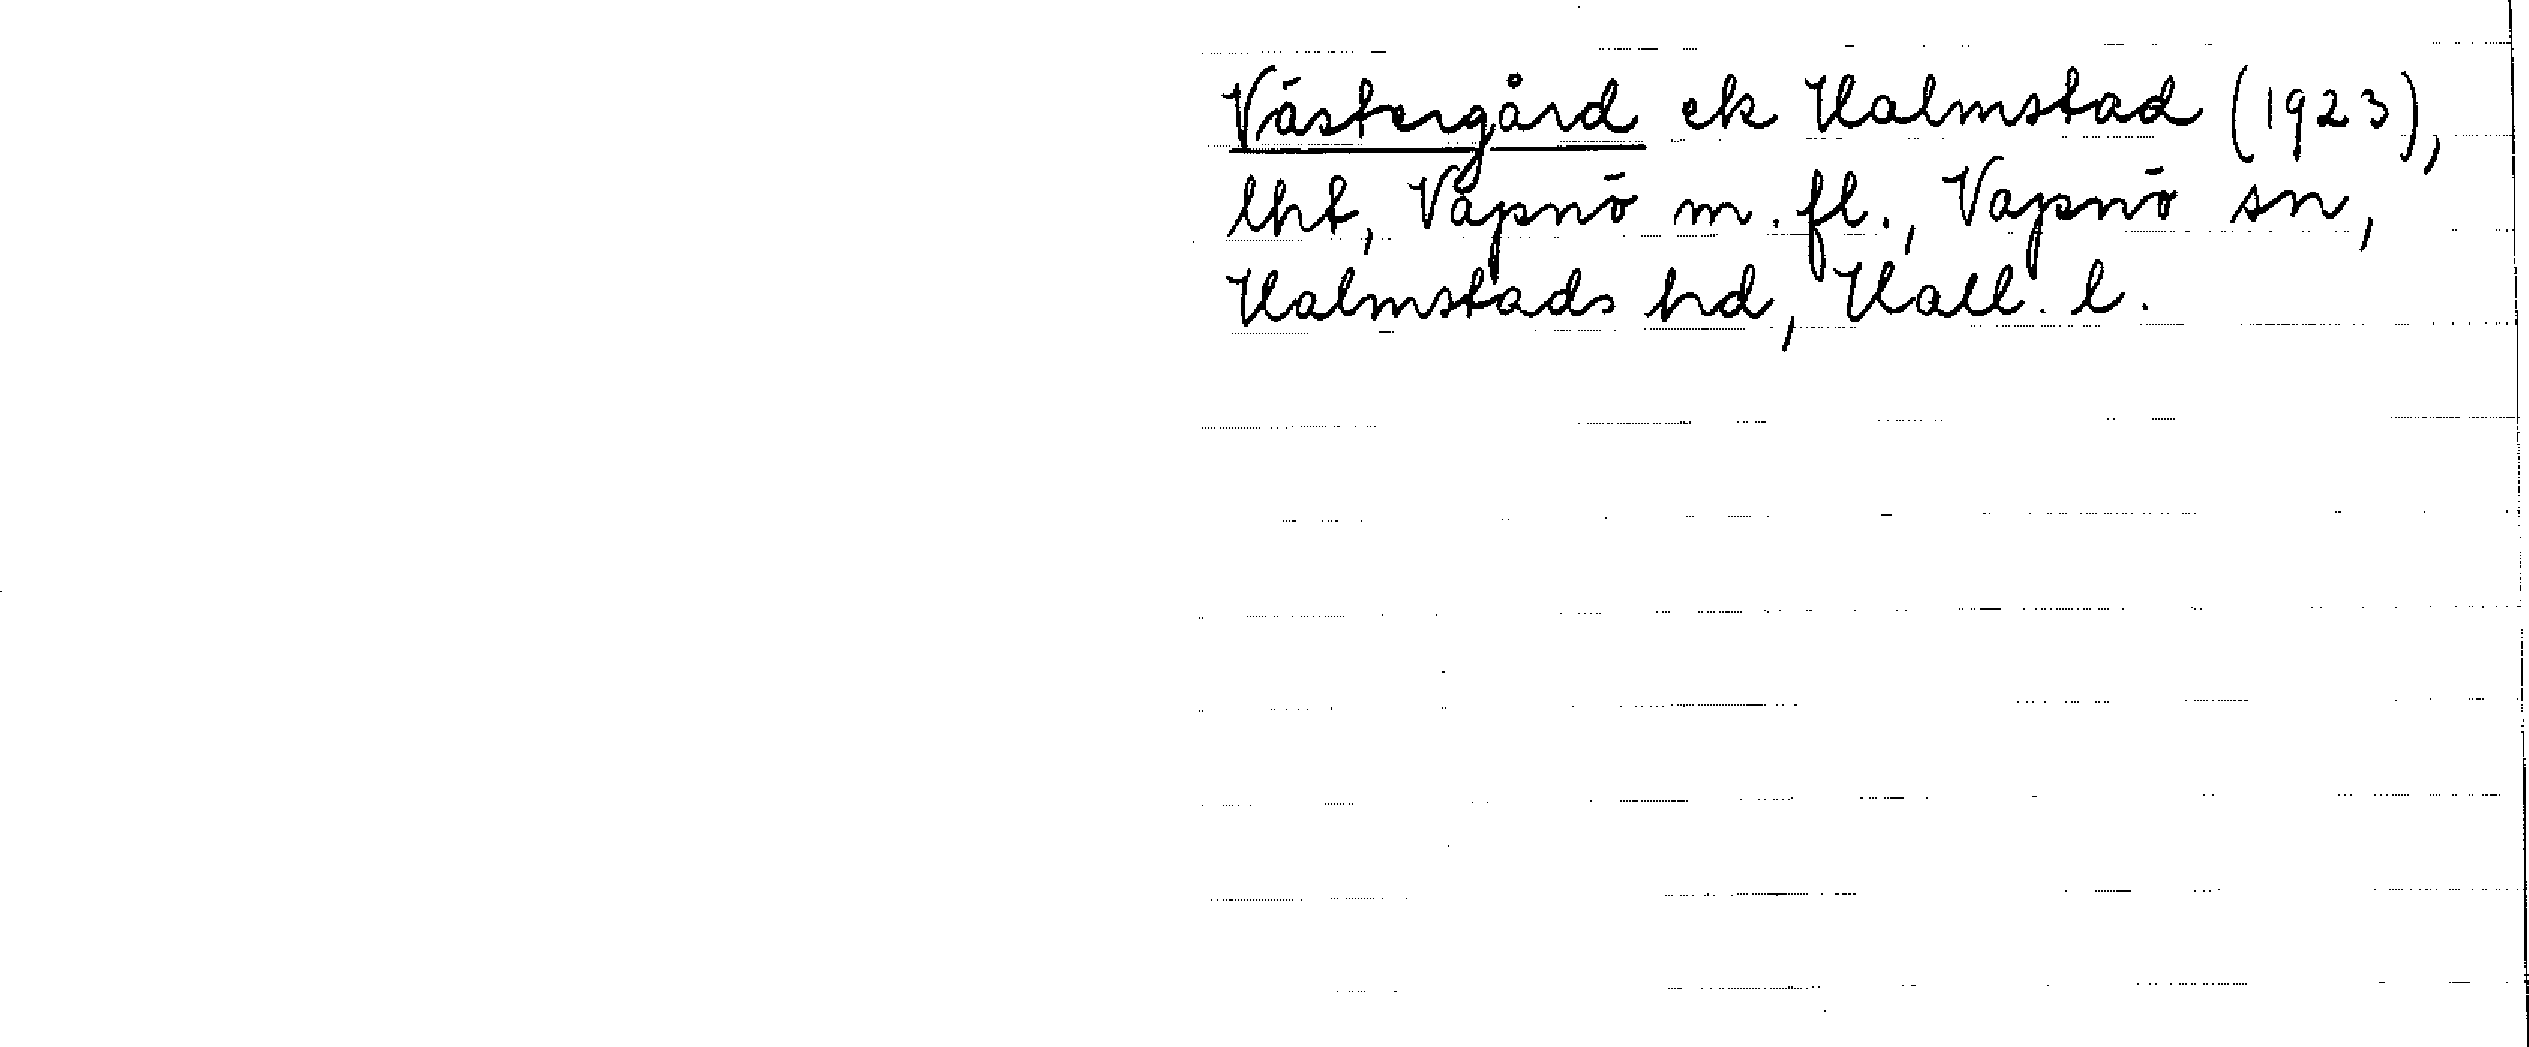 Västergård ek Halmstad (1923),
lht, Vapnö m. fl., Vapnö sn,
Halmstads hd, Hall. l.